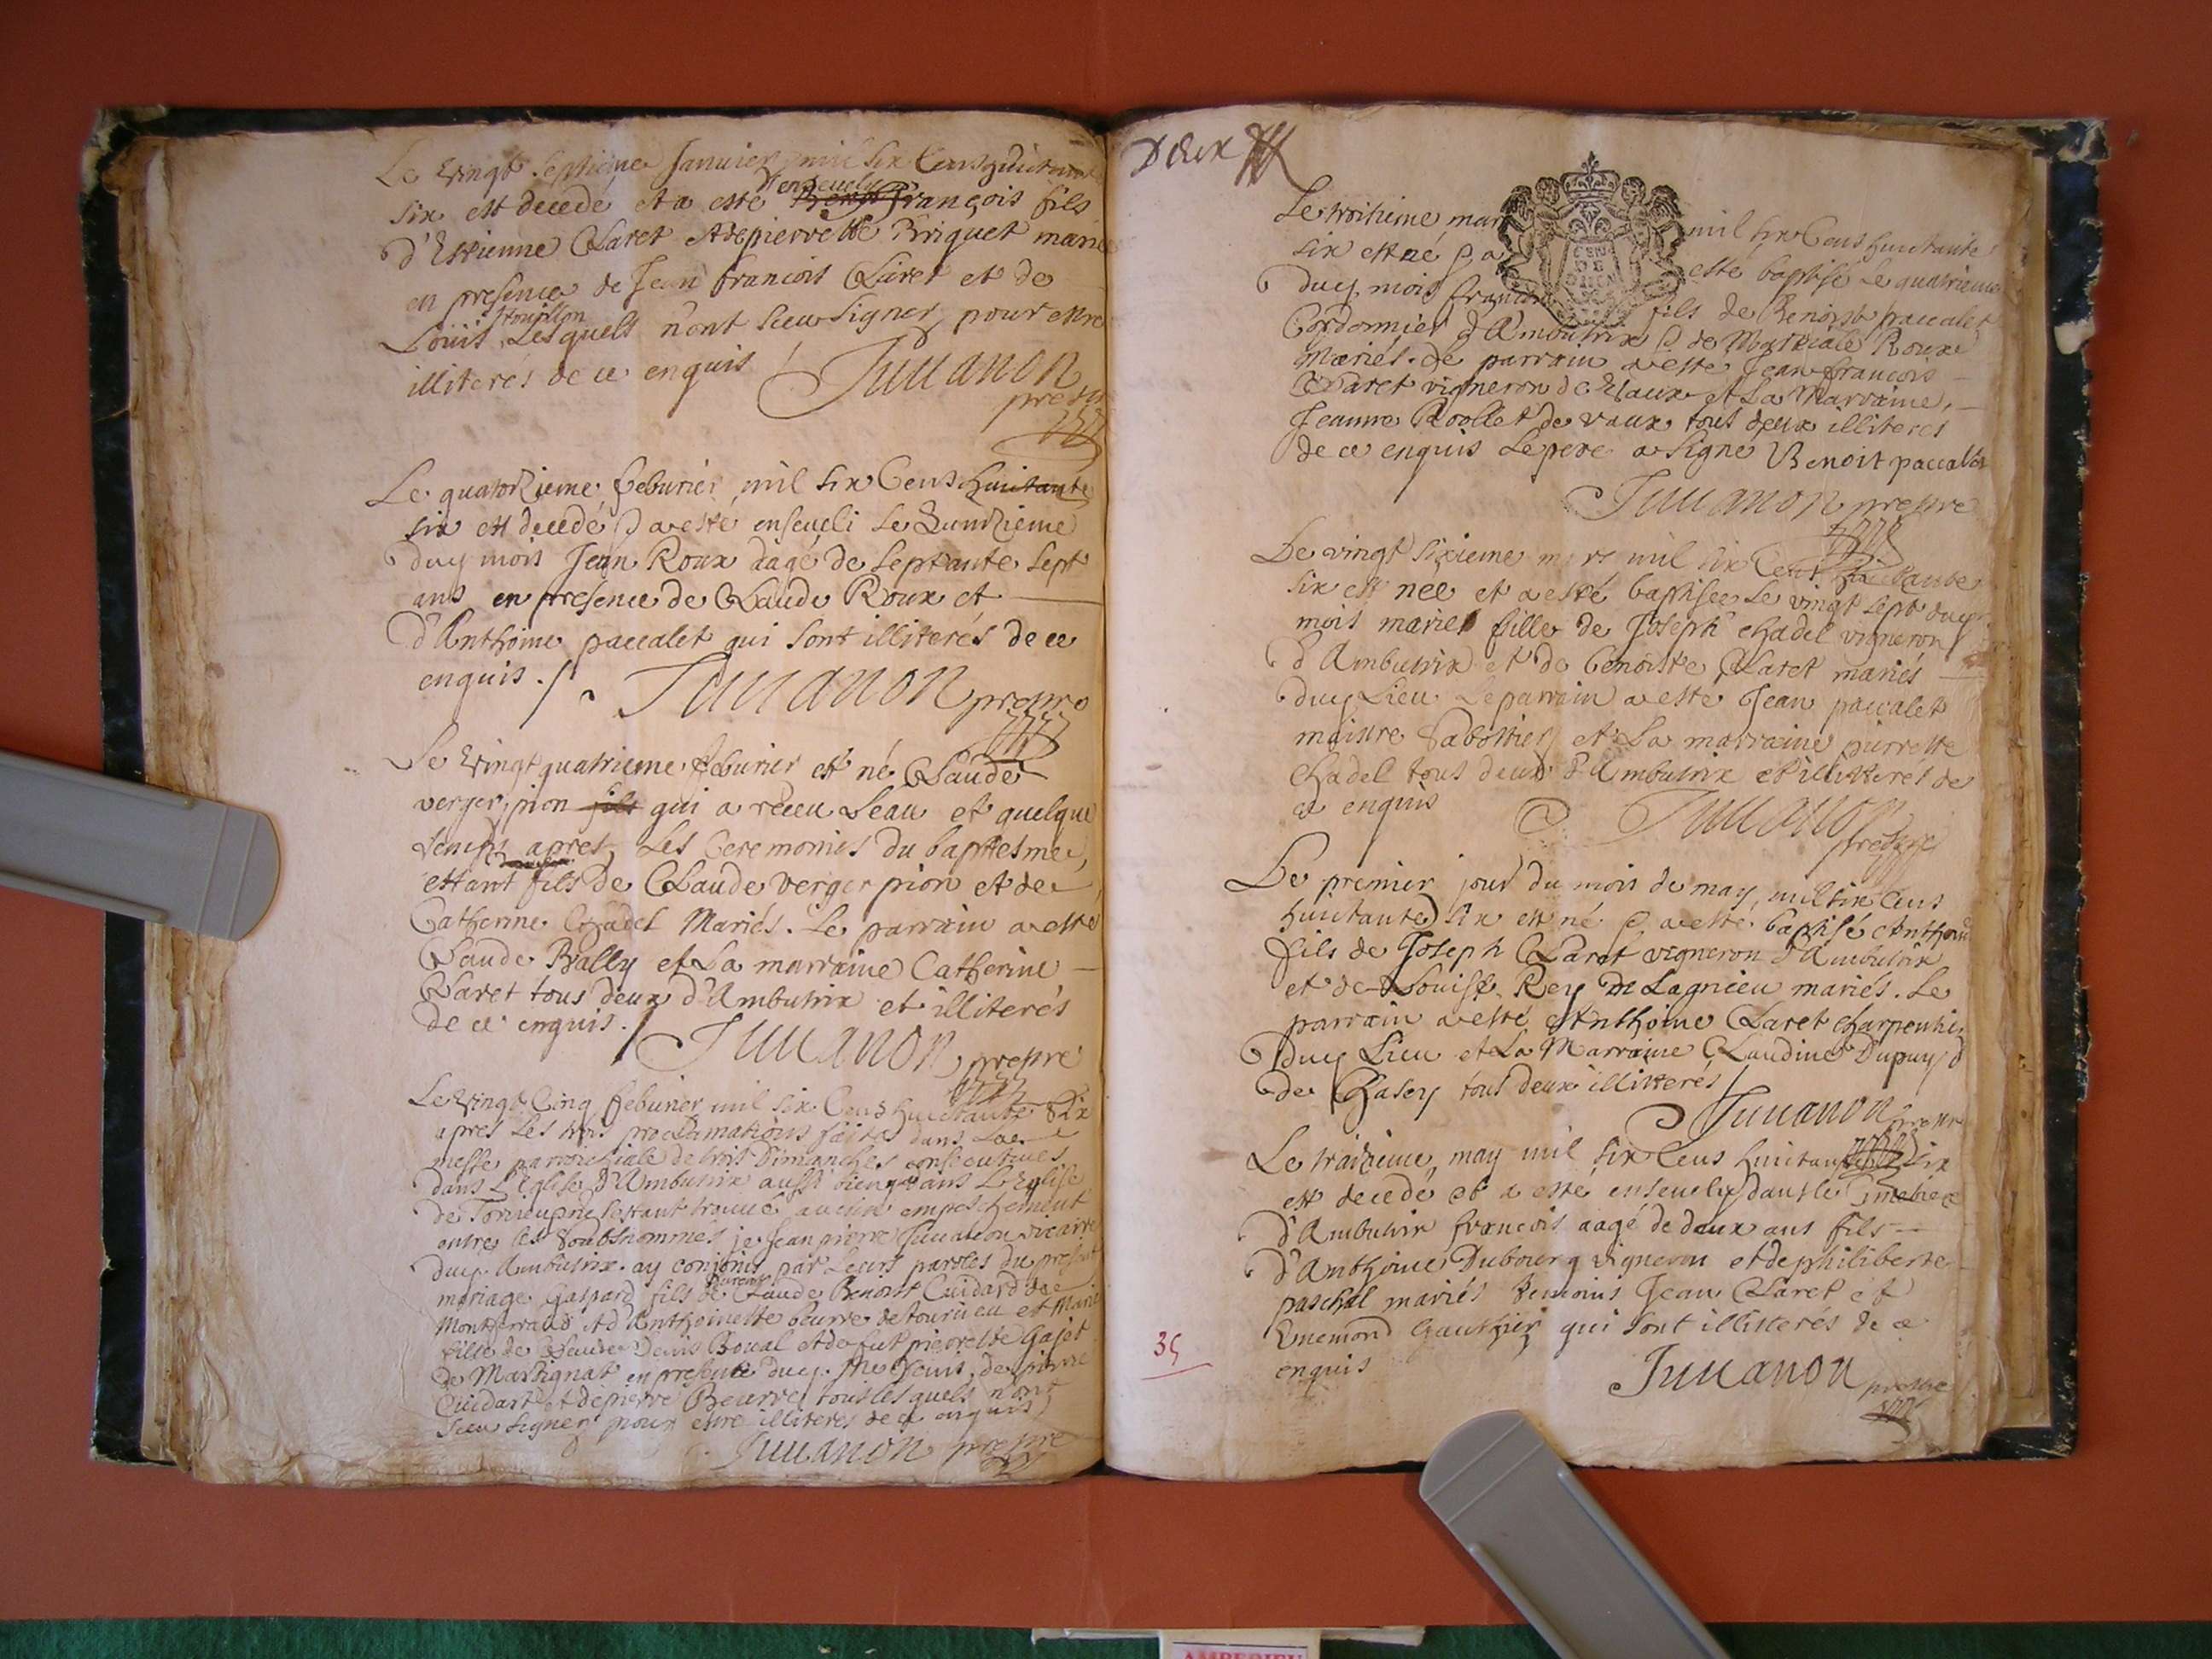 Le vingt septieme Januier mil six Cens huictante
six est decedé et a esté enseuely François fils
d'Estienne Claret et de pierrette Briquet mariés
en presence de Jean francois Claret et de
Louis Lesquels n'ont sceu signer pour estre
illiterés de ce enquis
Juuanon
prestre
Le quatorzieme feburier mil six Cens huictante
six est decedé & a esté enseueli le Quinzieme
duy mois Jean Roux aagé de septante sept
ans en presence de Claude Roux et
d'Anthoine paccalet qui sont illiterés de ce
enquis ./.
Juuanon prestre
Le vingt quatrieme feburier est né Claude
verger pion fils qui a receu Leau et quelque
temps apres, les Ceremonies du baptesme,
estant fils de Claude verger pion et de
Catherine Chadel Mariés. Le parrain a esté
Claude Bally et La marraine Catherine
Claret tous deux d'Ambutrix et illiterés
de ce enquis.
Juuanon prestre
Le vingt Cinq feburier mil six Cens huictante Six
apres les trois proclamations faites dans La
messe parrochiale de trois Dimanches consecutiues
dans L'Eglise d'Ambutrix aussi bien que dans L'Eglise
de Torcieu ne s'estant trouué aucun empeschement
entre les soubsnommés je Jean pierre Juuanon vicaire
duy. Ambutrix. ay conjoins par Leurs paroles du present
mariage Gaspard fils de Claude Benoist Cuidard de
Montferrand et d'Anthoinette beurre de torcieu et Marie
fille de Claude Denis Boual et de fut pierrette Gajot
de Martignat en presence duy. Denis, de pierre
Cuidard et de pierre Beurre tous lesquels n'ont
sceu signer pour estre illiterés de ce enquis
Juuanon prestre
Deux
Le troisieme mars mil six Cens huictante
six est né & a esté baptisé Le quatrieme
duy mois francois fils de Benoist paccalet
Cordonnier d'Ambutrix & de Martiale Roux
Mariés. Le parrain a esté Jean francois
Claret vigneron de Vaux et La Marraine,
Jeanne Roollet de vaux tous deux illiteres
de ce enquis Le pere a signé Benoit paccalet
Juuanon prestre
Le vingt sixieme mars mil six Cens huictante
six est née et a esté baptisée Le vingt sept duy
mois marie fille de Joseph chadel vigneron
d'Ambutrix et de benoiste Claret mariés
duy Lieu Le parrain a esté Jean paccalet
maistre Sabottier et La marraine pierrette
Chadel tous deux d'Ambutrix et illitterés de
ce enquis
Juuanon
prestre
Le premier jour du mois de may, mil six Cens
huictante six est né & a esté baptisé Anthoine
fils de Joseph Claret vigneron d'Ambutrix
et de Louise Rey de Lagnieu mariés. Le
parrain a esté Anthoine Claret charpentier
duy Lieu et La Marraine Claudine Dupuy
de Chasey tous deux illitterés
Juuanon prestre
Le traizieme may mil six Cens huictante six
est decedé et a esté enseuely dans le Cimetiere
d'Ambutrix francois aagé de deux ans fils
d'Anthoine Dubourg vigneron et de philiberte
paschal mariés temoins Jean Claret et
Ennemond Gauthier qui sont illitterés de ce
enquis
Juuanon prestre
35